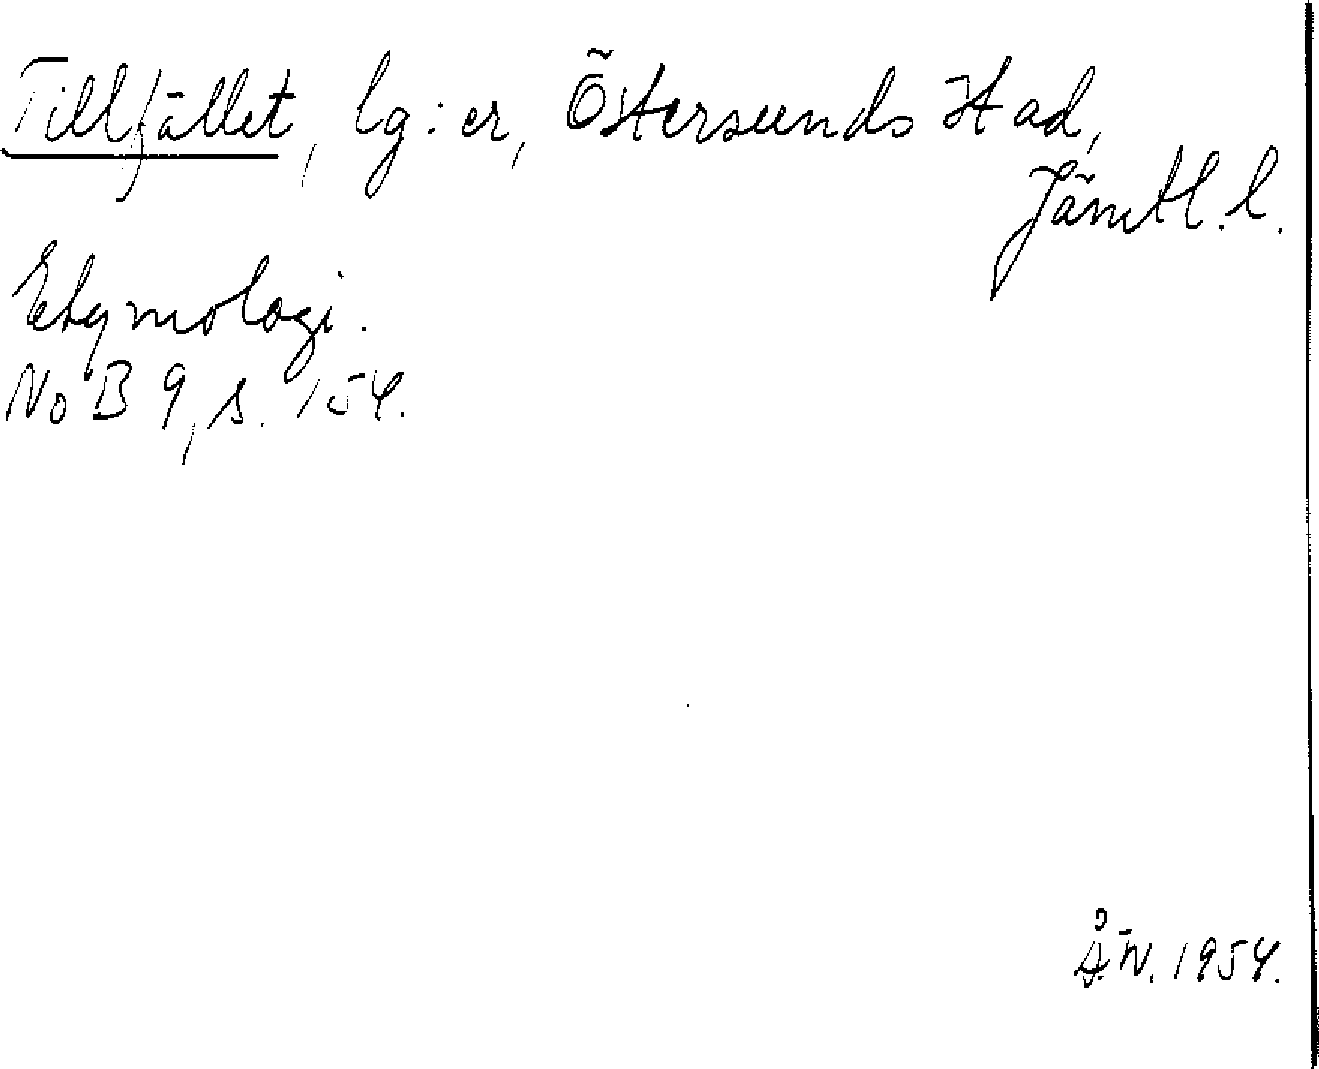 Tillfället, lg:er, Östersunds stad,
Jämtl. l.
Etymologi.
NoB 9, s. 154.
Å.W. 1954.